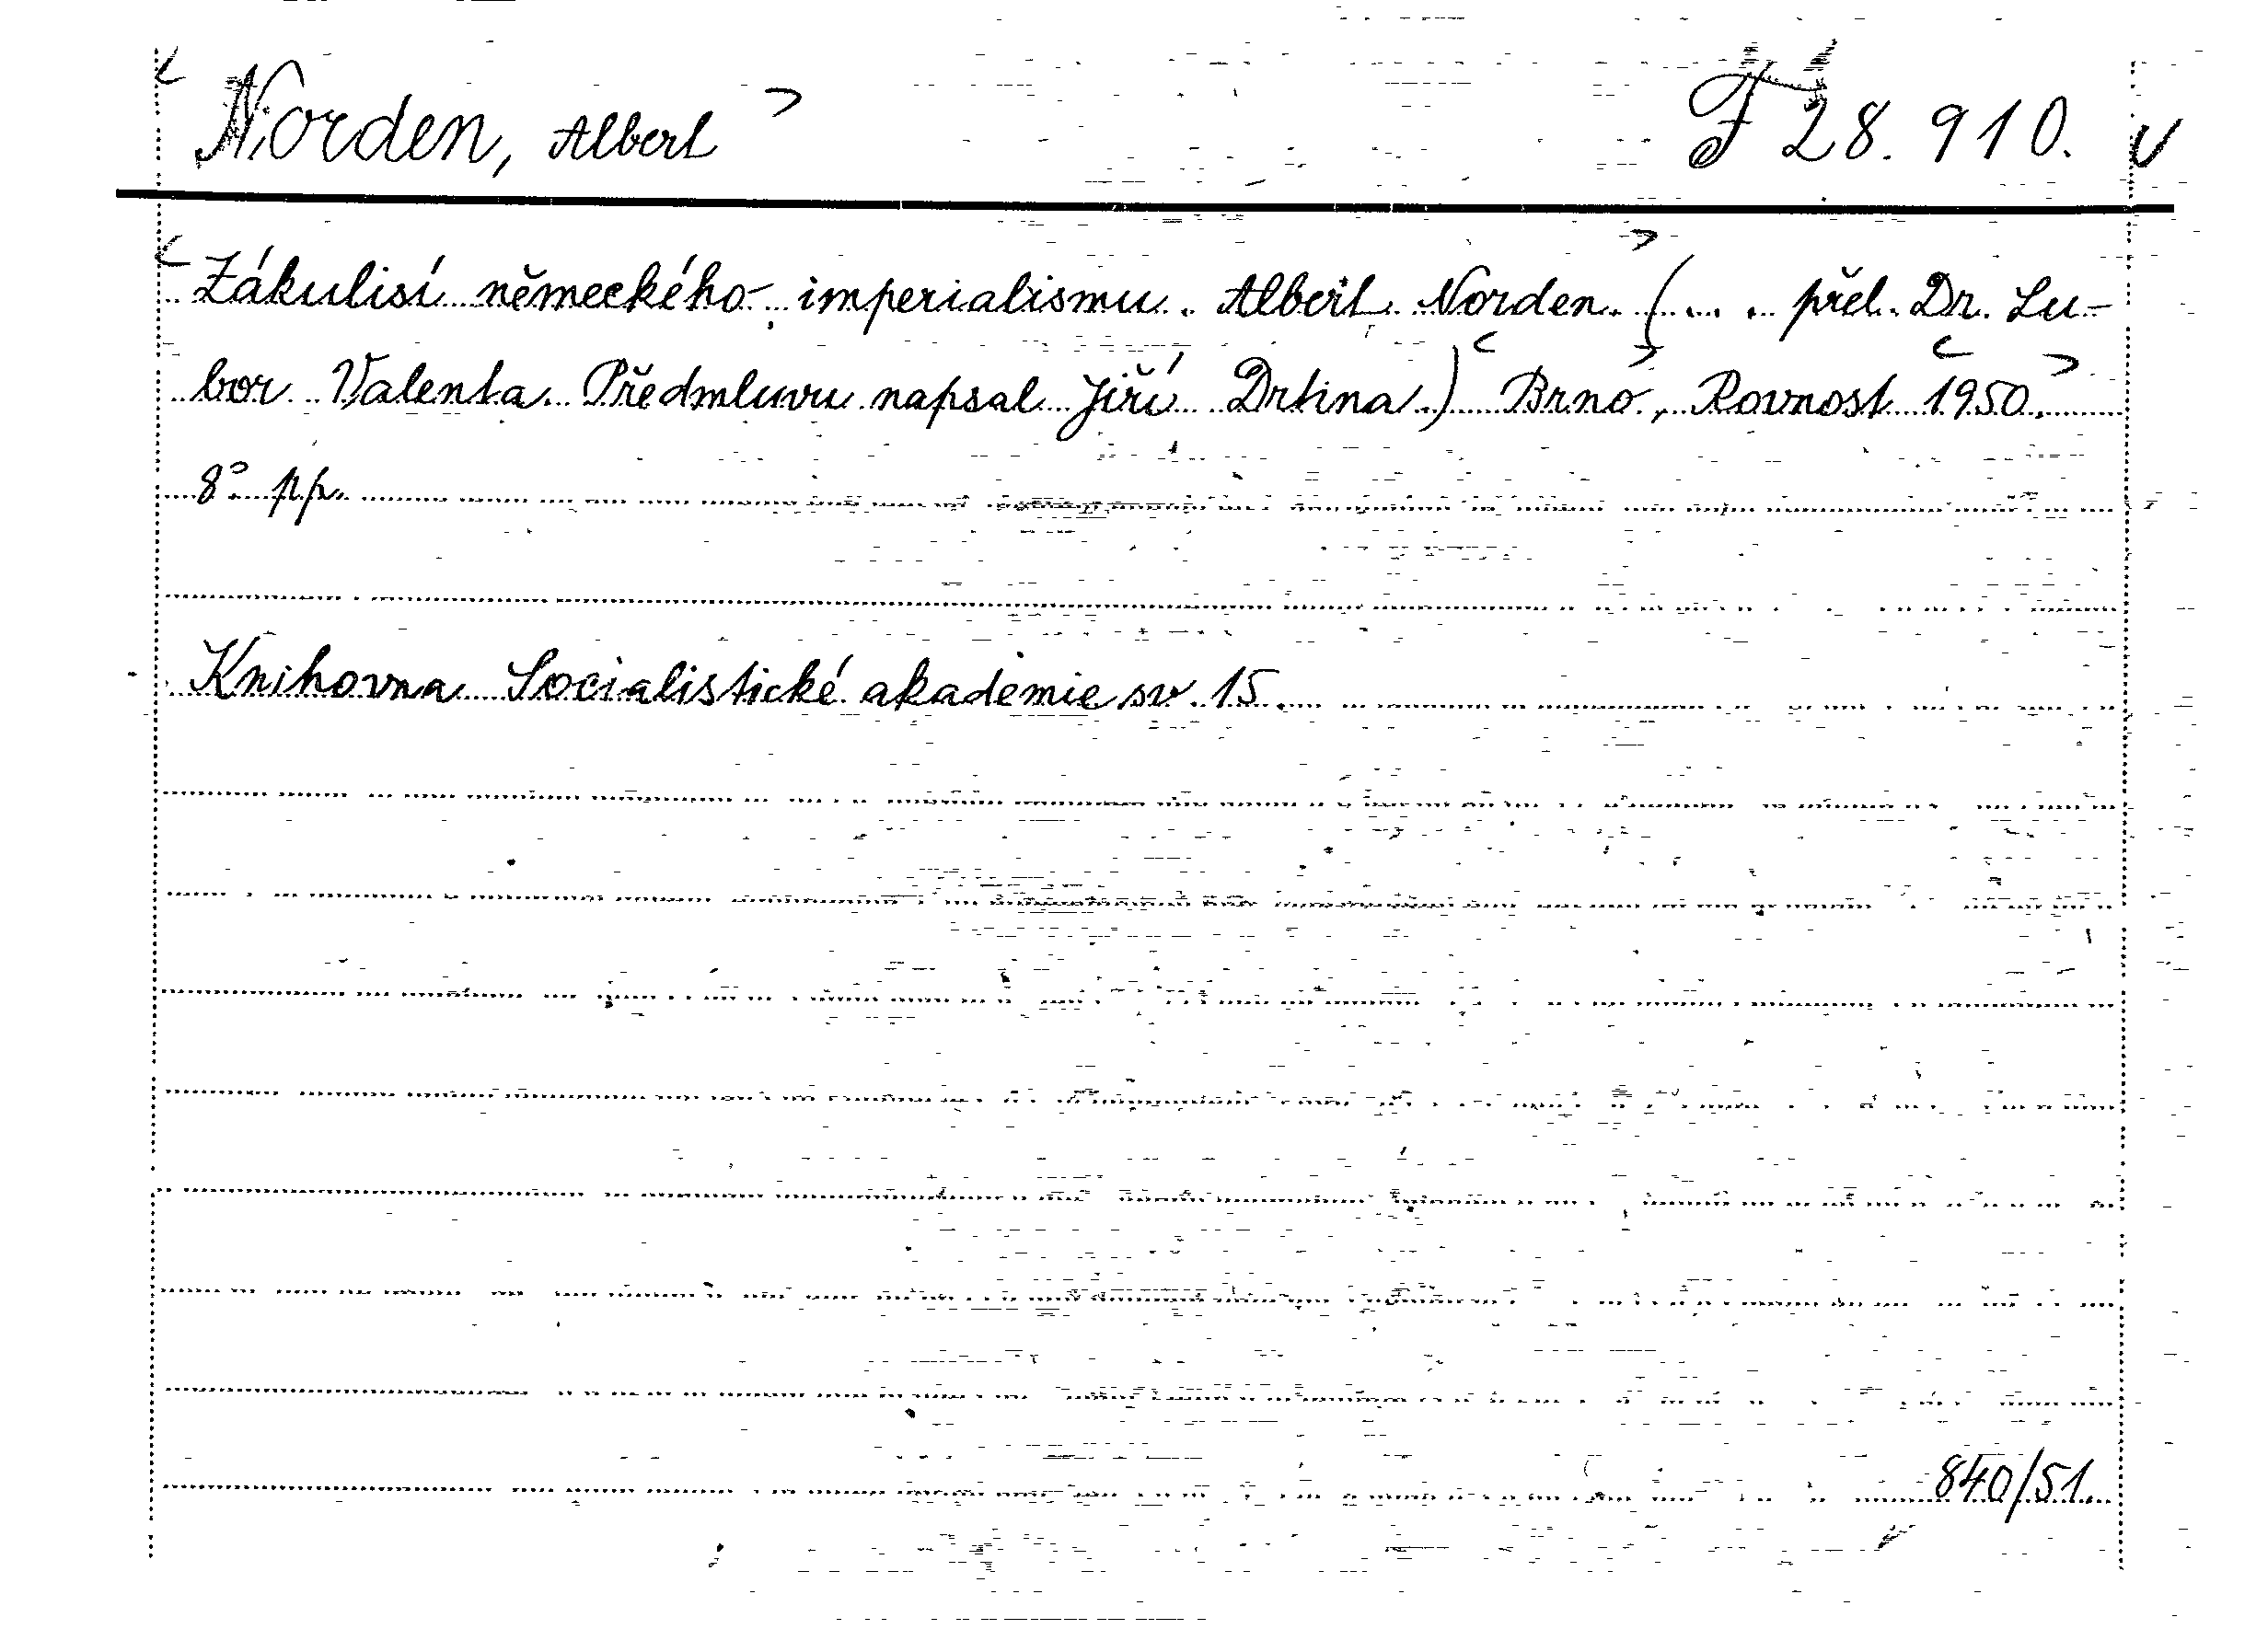 Norden, Albert F 28.910.
Zákulisí německého imperialismu. Albert Norden. (... přel. Dr. Lu-
bor Valenta. Předmluvu napsal Jiří Drtina.) Brno, Rovnost 1950.
8° pp.
Knihovna Socialistické akademie sv. 15.
840/51.